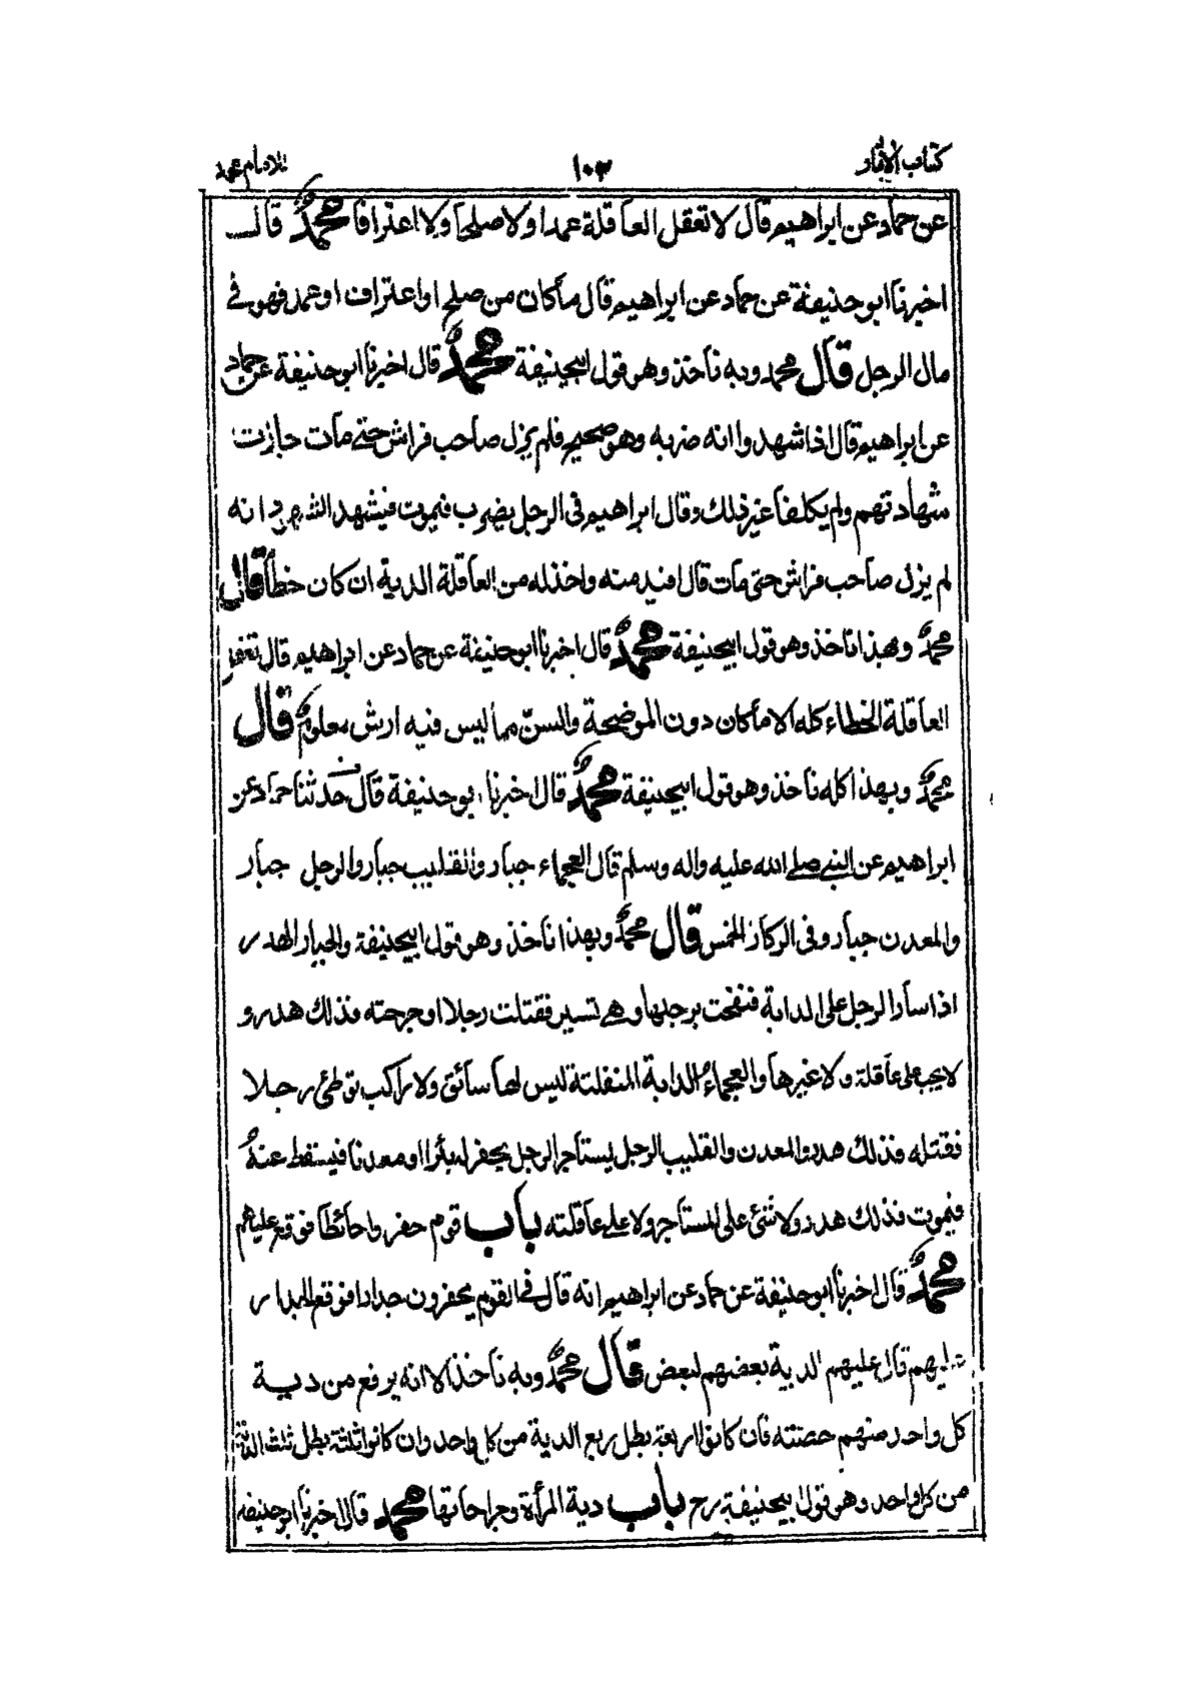 كتاب الآثار ١٠٣ للامام محمد
عن حماد عن ابراهيم قال لا تعقل العاقلة عمدا ولا صلحا ولا اعترافا محمدٌ قال
اخبرنا ابو حنيفة عن حماد عن ابراهيم قال ما كان من صلح او اعتراف او عمد فهو في
مال الرجل قال محمد وبه ناخذ وهو قول ابيحنيفة محمدٌ قال اخبرنا ابو حنيفة عن حماد
عن ابراهيم قال اذا شهدوا انه ضربه وهو صحيح فلم يزل صاحب فراش حتے مات جازت
شهادتهم ولم يكلفا غير ذلك وقال ابراهيم في الرجل يضرب فيموت فيشهد الشهود انه
لم يزل صاحب فراش حتى مات قال اقيد منه واخذله من العاقلة الدية ان كان خطأ قال
محمدٌ وبهذا ناخذ وهو قول ابيحنيفة محمدٌ قال اخبرنا ابو حنيفة عن حماد عن ابراهيم قال تعقل
العاقلة الخطاء كله الا ما كان دون الموضحة والسنّ مما ليس فيه ارش معلوم قال
محمدٌ وبهذا كله ناخذ وهو قول ابيحنيفة محمدٌ قال اخبرنا ابو حنيفة قال حدثنا حماد عن
ابراهيم عن النبے صلے الله عليه واله وسلم قال العجماء جبار والقليب جبار والرجل جبار
والمعدن جبار وفي الركاز الخمس قال محمدٌ وبهذا ناخذ وهو قول ابيحنيفة والجبار الهدر
اذا سار الرجل على الدابة فنفحت برجلها وهے تسير فقتلت رجلا او جرحته فذلك هدر و
لا يجب على عاقلة ولا غيرها والعجماءُ الدابة المنفلتة ليس لها سائق ولا راكب توطئ رجلا
فقتله فذلك هدر والمعدن والقليب الرجل يستاجر الرجل يحفر له بئرا او معدنا فيسقط عنهُ
فيموت فذلك هدر ولا شئ على المستاجر ولا علے عاقلته باب قوم حفروا حائطا فوقع عليهم
محمدٌ قال اخبرنا ابو حنيفة عن حماد عن ابراهيم انه قال في القوم يحفرون جدارا فوقع الجدار
عليهم قال عليهم الدية بعضهم لبعض قال محمدٌ وبه ناخذ الا انه يرفع من دية
كل واحد منهم حصته فان كانوا اربعة بطل ربع الدية من كل واحد وان كانوا ثلثة بطل ثلث الدية
من كل واحد وهو قول ابيحنيفة رح باب دية المرأة وجراحاتها محمد قال اخبرنا ابو حنيفة